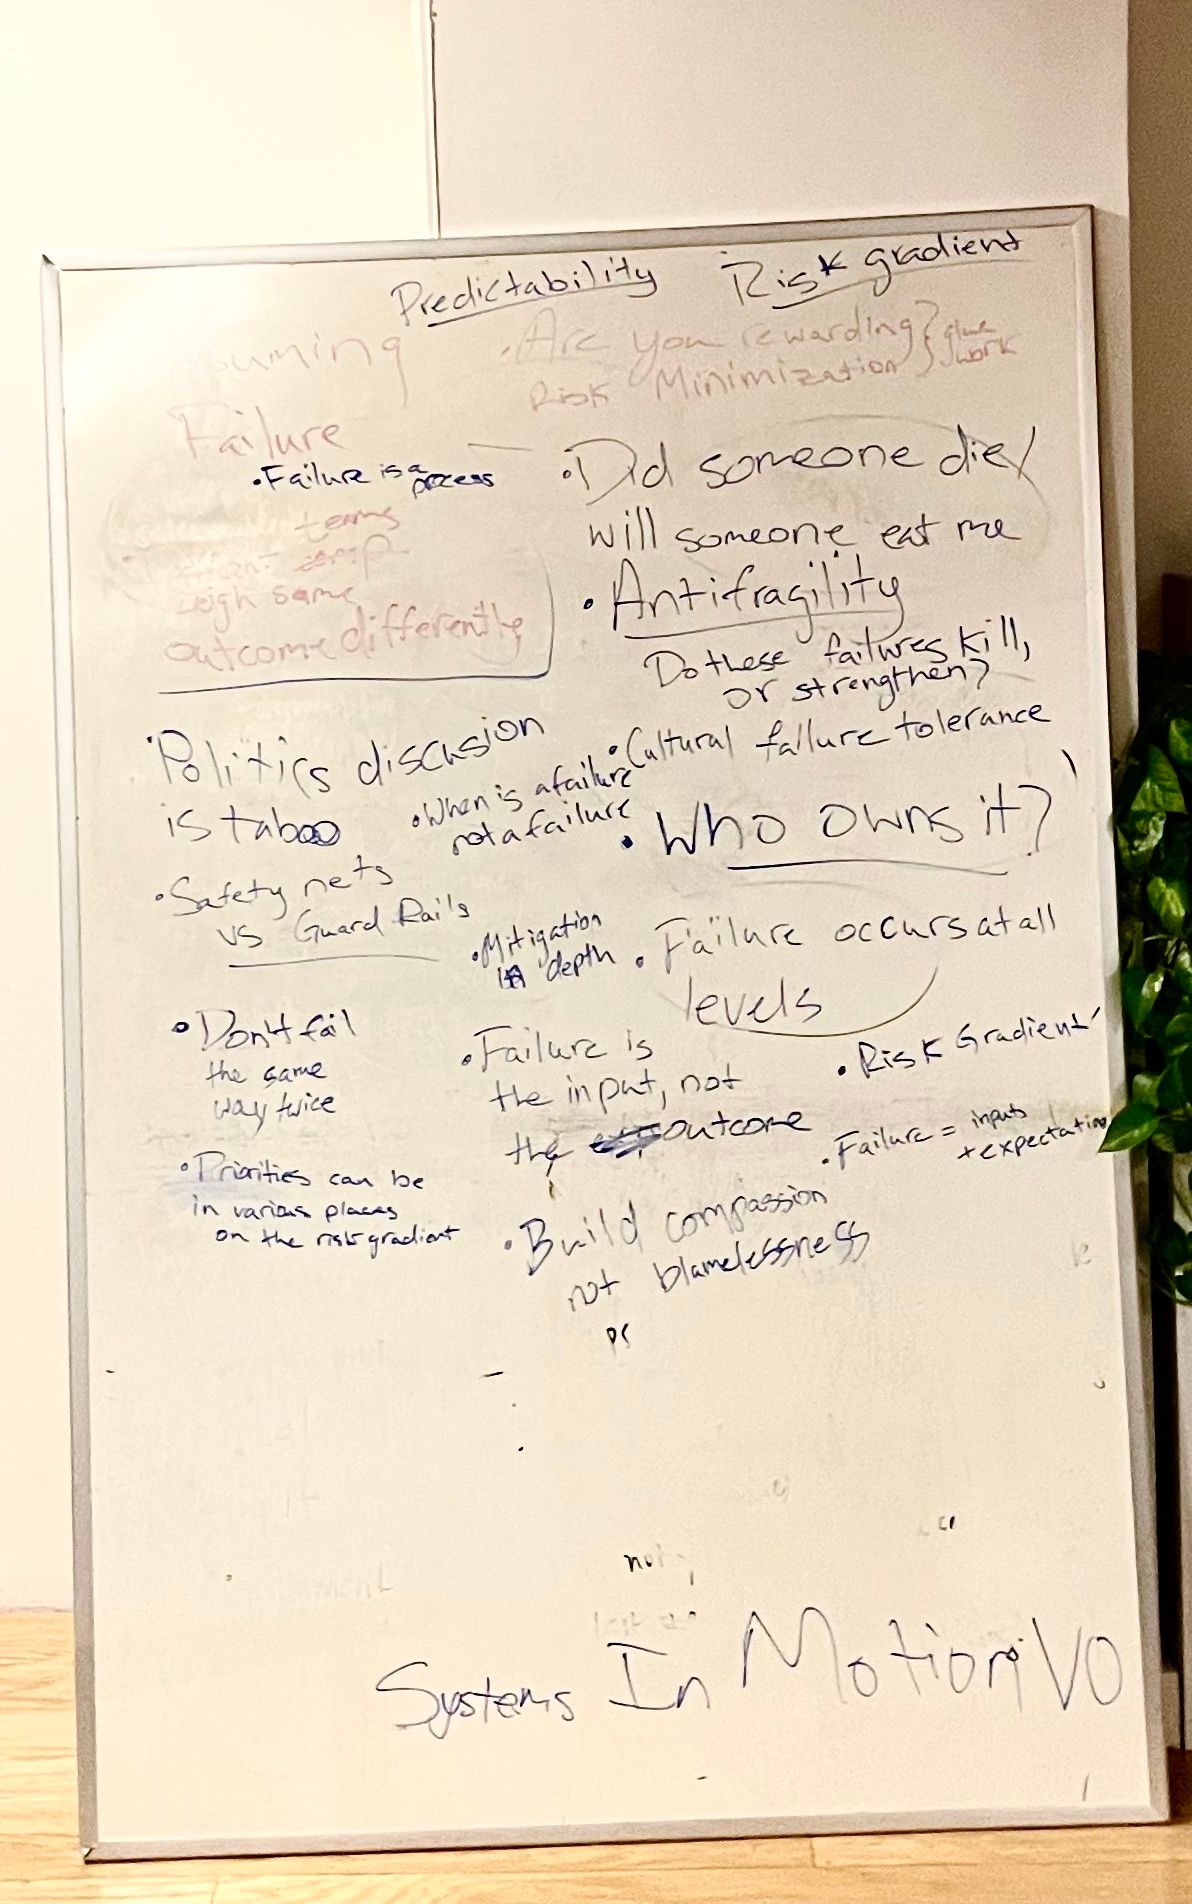 Predictability Risk gradient
• Are you rewarding } glue
Risk Minimization } work
Failure
• Failure is a process
teams
weigh same
outcome differently
• Did someone die/
will someone eat me
• Antifragility
Do these failures kill,
or strengthen?
• Cultural failure tolerance
• Politics discusion
is taboo
• When is a failure
not a failure
• Who owns it?
• Safety nets
vs Guard Rails
• Mitigation
in depth
• Failure occurs at all
levels
• Don't fail
the same
way twice
• Failure is
the input, not
the outcome
• Risk Gradient
• Failure = inputs
+ expectation
• Priorities can be
in various places
on the risk gradient
• Build compassion
not blamelessness
Systems In Motion V0